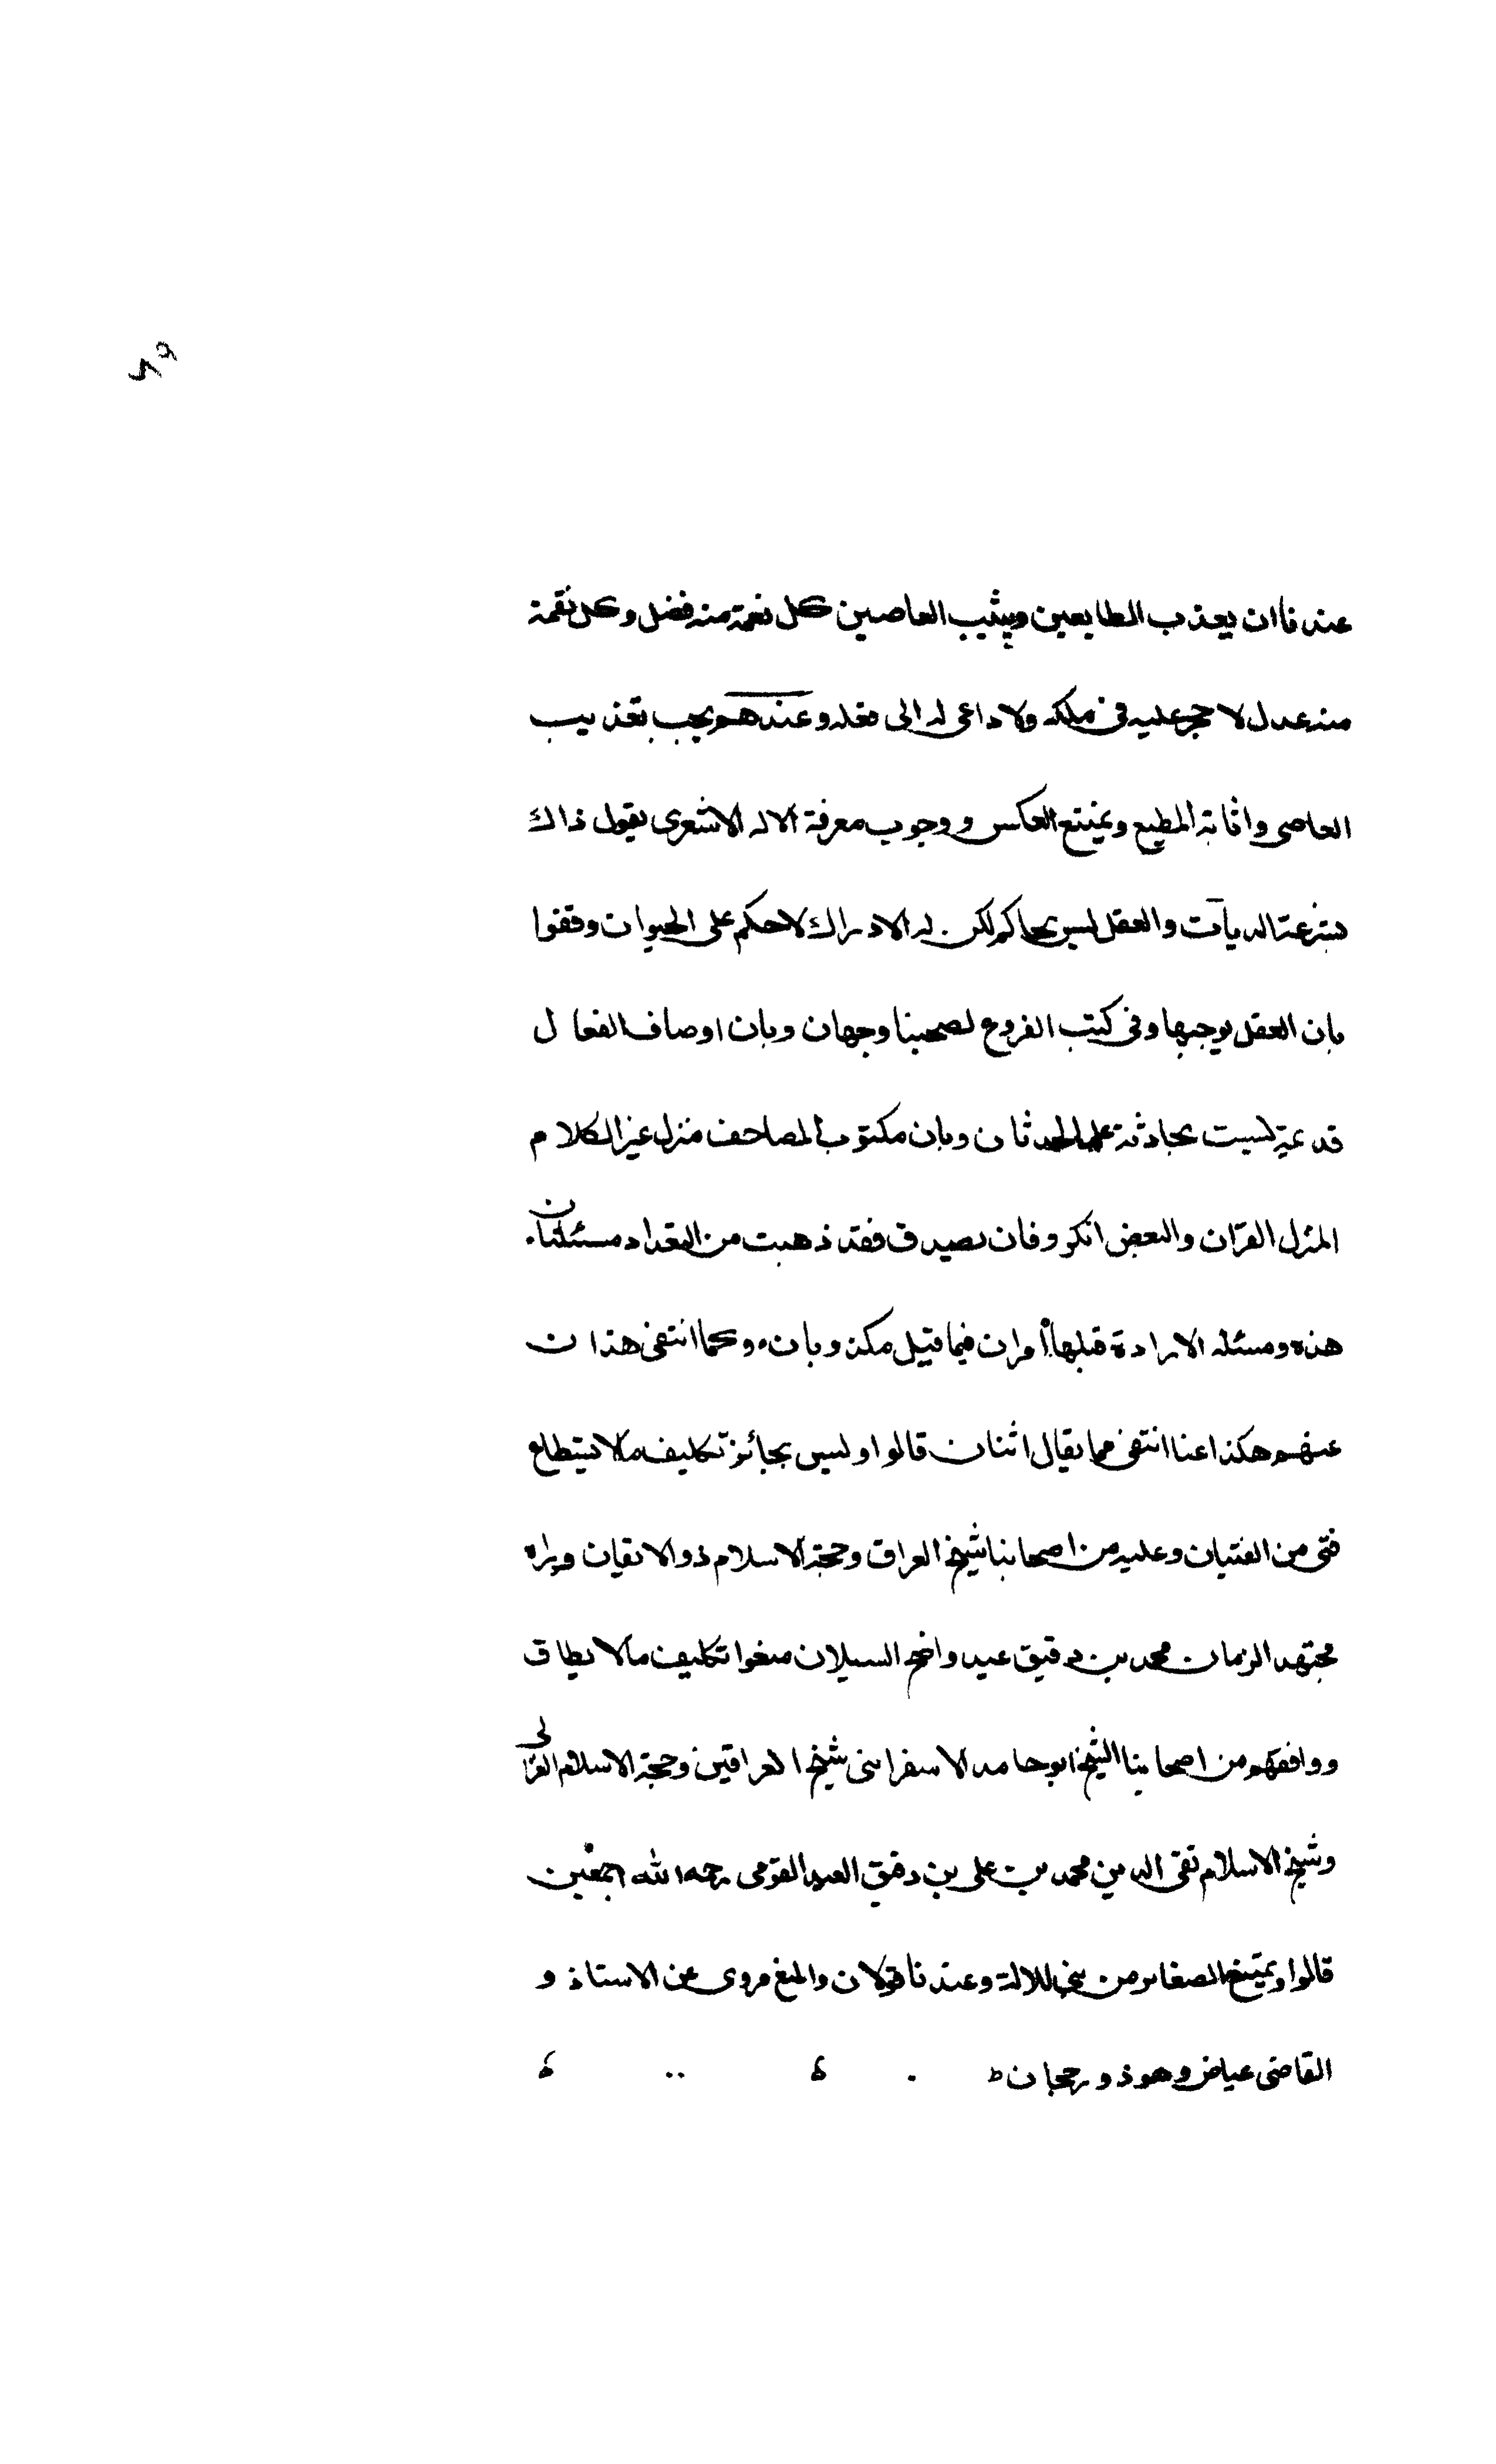 ٨٩
عندنا ان يعذب الطايعين ويثيب العاصين كل نعمة منه فضل وكل نقمة
منه عدل لا حجر عليه في ملكه ولا داعي له الى فعله وعندهم يجب تعذيب
العاصي واثابة المطيع ويمتنع العكس و وجوب معرفة الاله الاشعري يقول ذاك
شرعة الديات والعقل ليس بحاكم لكن له الادراك لا حكم على الحيوان وقفوا
بان العقل يوجبها وفي كتب الفروع لصحبنا وجهان وبان اوصاف الفعال
قديمة ليست بحادثة على الحدثان وبان مكتوب المصاحف منزل غير الكلام
المنزل القران والبعض انكر وفان يصدق فقد ذهبت من التعداد مسئلتان
هذه ومسئلة الارادة قبلها أمران فيما قيل مكذوبان وكما انتفى هذان
عنهم هكذا عنا انتفى مما يقال اثنان قالوا وليس بجائز تكليف ما لا يستطاع
فتى من الفتيان وعليه من اصحابنا شيخ العراق وحجة الاسلام ذو الاتقان وراه
مجتهد الزمان محمد بن دقيق عيد واضح السبلان منعوا تكليف ما لا يطاق
ووافقهم من اصحابنا الشيخ ابو حامد الاسفرايني شيخ العراقين وحجة الاسلام الغزالي
وشيخ الاسلام تقي الدين محمد بن علي بن دقيق العيد القومي رحمه الله اجمعين
قالوا ويمتنع الصغاير من نبي للالة وعندنا قولان والمنع مروي عن الاستاذ و
القاضي عياض وهو ذو رجحان